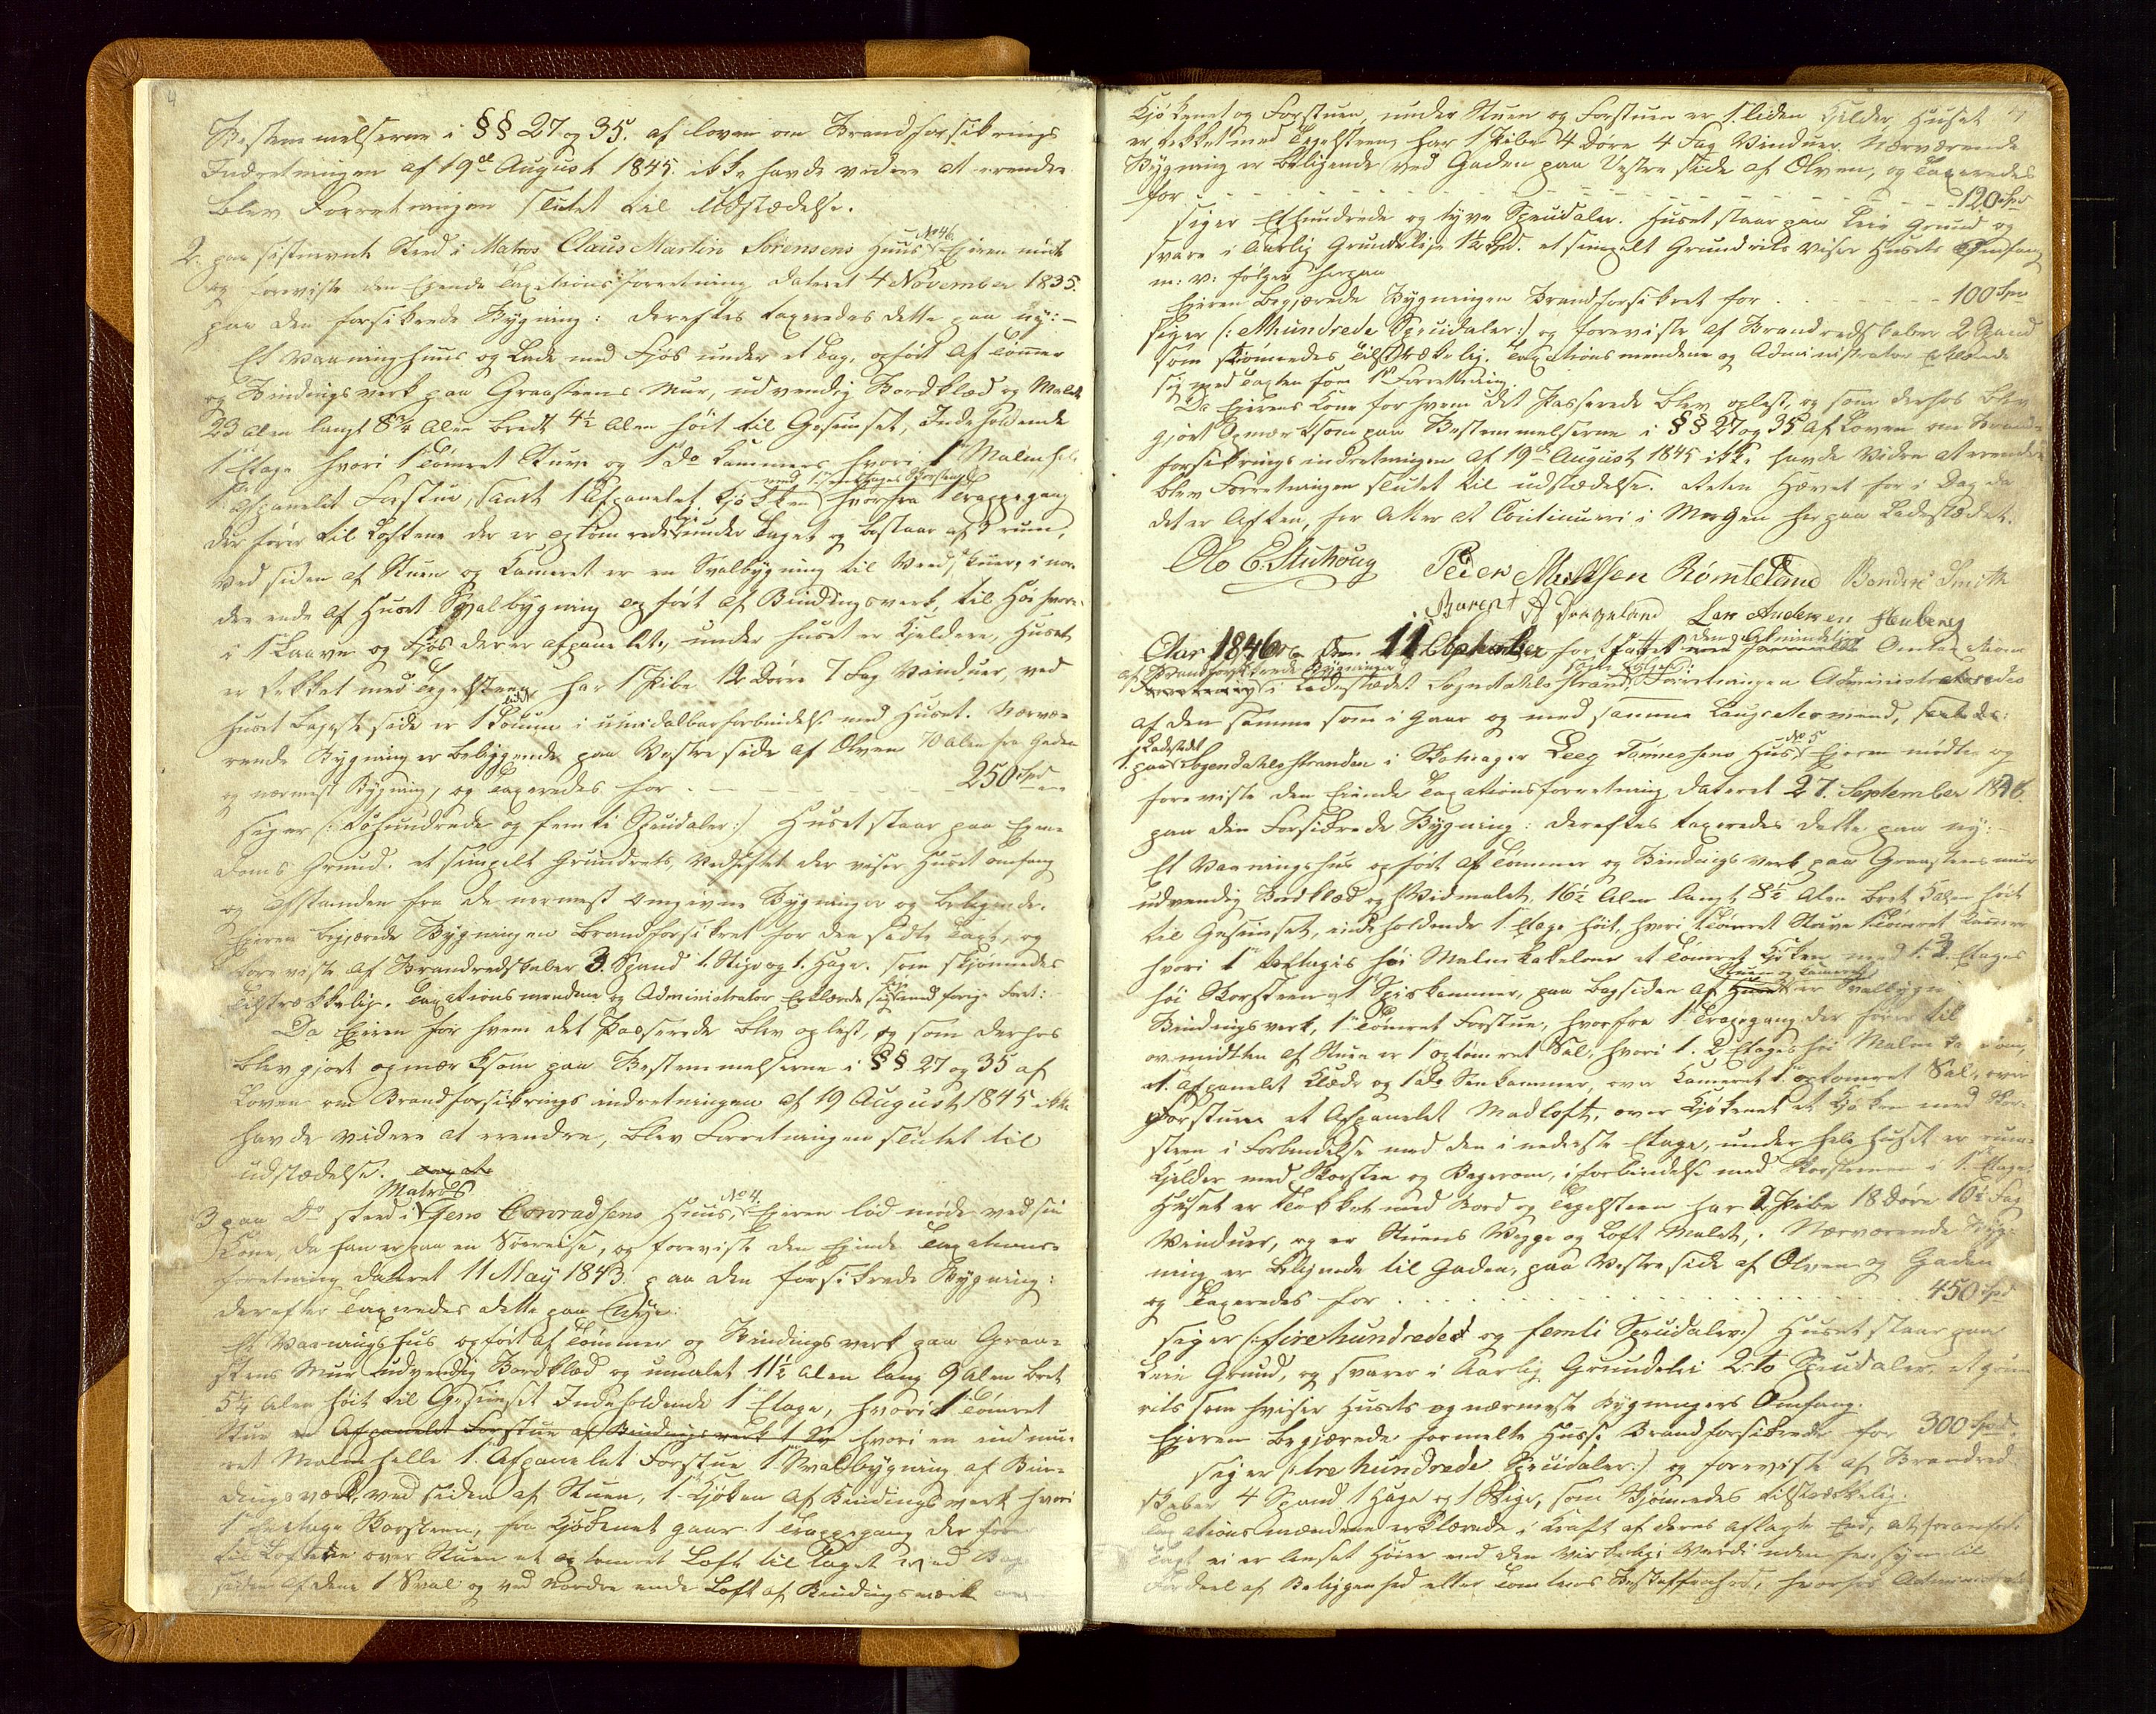 4
Bestemmelserne i §§ 27 og 35. af loven om Brandforsikrings
Indretningen af 19de August 1845. ikke havde videre at erendre
blev Forretningen slutet til Udstædelse.
2. paa sistnevnte Sted i Matros Claus Martin Sörensens Huus No 46 Eieren mödte
og foreviste den Eiende Taxationsforretning dateret 4 November 1835.
paa den forsikrede Bygning: derefter taxeredes dette paa ny:-
Et Vaaninghuus og Lade med Fjøs under et Tag, opfört af Tömmer
og Bindingsverk paa Graasteens Muur, udvendig Bordklæd og Malet
23 Alen langt 8 3/4 Alen bredt 4 1/2 Alen höit til Gesimset, Indeholdende
1 Etage hvori 1 Tömret Stuve og 1 Do Kammers hvori 1 Malm
1 Afpanelet Forstue, samt 1 Afpanelet Kjökken hvorfra 1 Trappegang
der förer til Loftene der er optömrede under Taget og bestaar af 3 rum,
Ved siden af Stuen og Kameret er en Svalbygning til Weed, i nor-
dre ende af Huset Svalbygning opfört af Bindingsverk, til Hö hvor-
i 1 Laave og Fjøs der er afpanelet, under huset er Kjeldere, Huset
er tekket med Tegelsteen har 1 Pibe 12 Dörre 7 Fag Vinduer, ved
huset Bageste side er 1 i umidelbar forbindelse med Huset. Nærvæ-
rende Bygning er beliggende paa Vestre side af Elven 70 Alen fra Gaden
og nærmest Bygning, og Taxeredes for - - - - 250 Spd
siger (: Tohundrede og femti Speidaler:) Huset staar paa Eien-
doms Grund. et simpelt Grundrits Vedheftet der viser Huset omfang
og Afstanden fra de nermest omgivne Bygninger og beligende.
Eieren begjærede Bygningen brandforsikret for den sidste Taxt, og
foreviste af Brandredskaber 3. Spand 1. Stige og 1. Hage. som skjönnedes
Tilstrækkelig. Taxationsmendene og Administrator Erklærede sig som ved forige Forr:
Da Eieren for hvem det Passerede blev oplest, og som derhos
blev gjort opmærksom paa Bestemmelserne i §§ 27 og 35 af
Loven om Brandforsikrings indretningen af 19 August 1845 ikke
havde videre at erendre, blev Forretningen slutet til
udstædelse.
3 paa Do sted i Matros Jens Conradsens Huus, No 4. Eieren lod möde ved sin
Kone, da han er paa en Söereise, og foreviste den Eiende Taxations-
foretning dateret 11 May 1843. paa den forsikrede Bygning:
derefter Taxeredes dette paa Nye:
Et Vaaningshus opfört af Tömmer og Bindingsverk paa Graa-
stens Mur udvendig Bordklæd og umalet 11 1/2 Alen lang 9 Alen bret
5 1/4 Alen höit til Gesimset Indeholdende 1 Etage, hvori 1 Tömret
Stue en Afpanelet Forstue af Bindingsverk 1 Sv hvori en indmu-
ret Malmhelle 1. Afpanelet Forstue 1 Svalbygning af Bin-
dingsværk, ved siden af Stuen, 1 Kjöken af Bindingsverk hvori
1 Etage Skorsteen, fra Kjökenet gaar 1 Trappegang der förer
til Loftene over Stuen et optömret Loft til Taget ved Bag-
siden af dene 1 Sval og ved Nordre ende Loft af Bindingsværk
Kjökenet og Forstuen, under Stuen og Forstuen er 1. liden Kjelder, Huset
er tekket med Tegelsteen, har 1 Pibe 4 döre 4 Fag Vinduer. Nærværende
Bygning er beligende ved Gaden paa Vestre side af Elven, og Taxeredes
for - - - - 120 Spd
siger Ethundrede og tyve Speidaler. Huset staar paa Leie Grund og
svare i Aarlig Grundleje 1 1/2 Spd. et simpelt Grundrits viser Husets Omfang
m: v: fölger herpaa
Eieren begjærede Bygningen Brandforsikret for - - - - 100 Spd
siger (: Ethundrede Speidaler:) og foreviste af Brandredskaber 2 Spand
som skjönnedes Tilstrækelig. Taxationsmendene og Administrator Erklærede
sig med Taxten som 1ste Forretning.
Da Eierens Kone for hvem det Passerede blev oplest, og som derhos blev
gjort Opmærksom paa Bestemmelserne i §§ 27 og 35 af Loven om Brand-
forsikrings indretningen af 19de August 1845 ikke havde Videre at erendre
blev Forretningen slutet til udstædelse. Reten Hævet for i Dag da
det er Aften, for Atter at Continueri i Morgen her paa Ladestædet.
Ole E. Stuhoug Peder Mikkelsen Rømteland Bendix Smith
Barent A Lars Andersen Stenberg
Aar 1846 den 11 September fortsattes den Almindelige Omtaxation
af Brandforsikrede Bygninger i Ladestædet Sogndahls Strand, Forretningen Administreredes
af den samme som i Gaar og med samme Laugrettesmend, saaledes:
1. paa Ladestedet Sogendahls Stranden i Skomager Teeg Tönnesens Hus No 5 Eieren mödte og
foreviste den Eiende Taxationsforretning dateret 27. September 1836.
paa den Forsikrede Bygning: derefter taxeredes dette paa ny:-
Et Vaaningshus opfört af Tömmer og Bindingsverk paa Graasteens muur
udvendig Bordklæd og Hvidmalet, 16 1/2 Alen langt 8 1/2 Alen bret Alen höit
til Gesimset, indeholdende 1 Etage höit, hvori 1 Tömret Stuve 1 Tömret Kammer
hvori 1 Etages höi Malm Kakelovn et Tömret Kjöken med 1. 2 Etages
höi Skorsteen, 1 Spiskammer, paa bagsiden af Stuen og Kameret er Svalbygn
Bindingsverk, 1 Tömret Forstue, hvorfra 1 Trapegang der förer til
ov midtten af Stuen er 1 optömret Sal, hvori 1. 2 Etages höi Malm
1. Afpanelet Klæde og 1 Do Senkammer, over Kameret 1 optömret Sal, over
Forstuen et Afpanelet Madloft, over Kjökenet et Kjöken med Skor-
steen i Forbindelse med den i nederste Etage, under hele huset er rum-
Kjelder med Skorsten og Bagerovn, i forbindelse med Skorstenen i 1. Etage.
Huset er Tekket med Bord og Tegelsteen har 2 Piber 18 döre 10 1/2 Fag
Vinduer, og er Stuens Vegge og Loft Malet,. Nærværende Byg-
ning er Beligende til Gaden, paa Vestre side af Elven og Gaden
og Taxeredes for . . . . 450 Spd
siger (: firehundrede og femti Speidaler:) Huset staar paa
Leie Grund, og svarer i Aarlig Grundleie 2. to Speidaler, et grun
rits som hviser Husets og nærmeste Bygningers Omfang.
Eieren begjærede formelte Husse Brandforsikrede for 300 Spd.
siger (: tre hundrede Speidaler:) og foreviste af Brandred-
skaber 4 Spand 1 Hage og 1 Stige, som skjönnedes tilstrækkelig.
Taxationsmændene erklærede i Kraft af deres aflagte Eed, at foranförte
Taxt ei er ansat Höier end den Virkelige Værdi uden hensyn til
Fordeel af Beliggenhed eller Tomtens Beskaffenhed, hvorhos Administrat